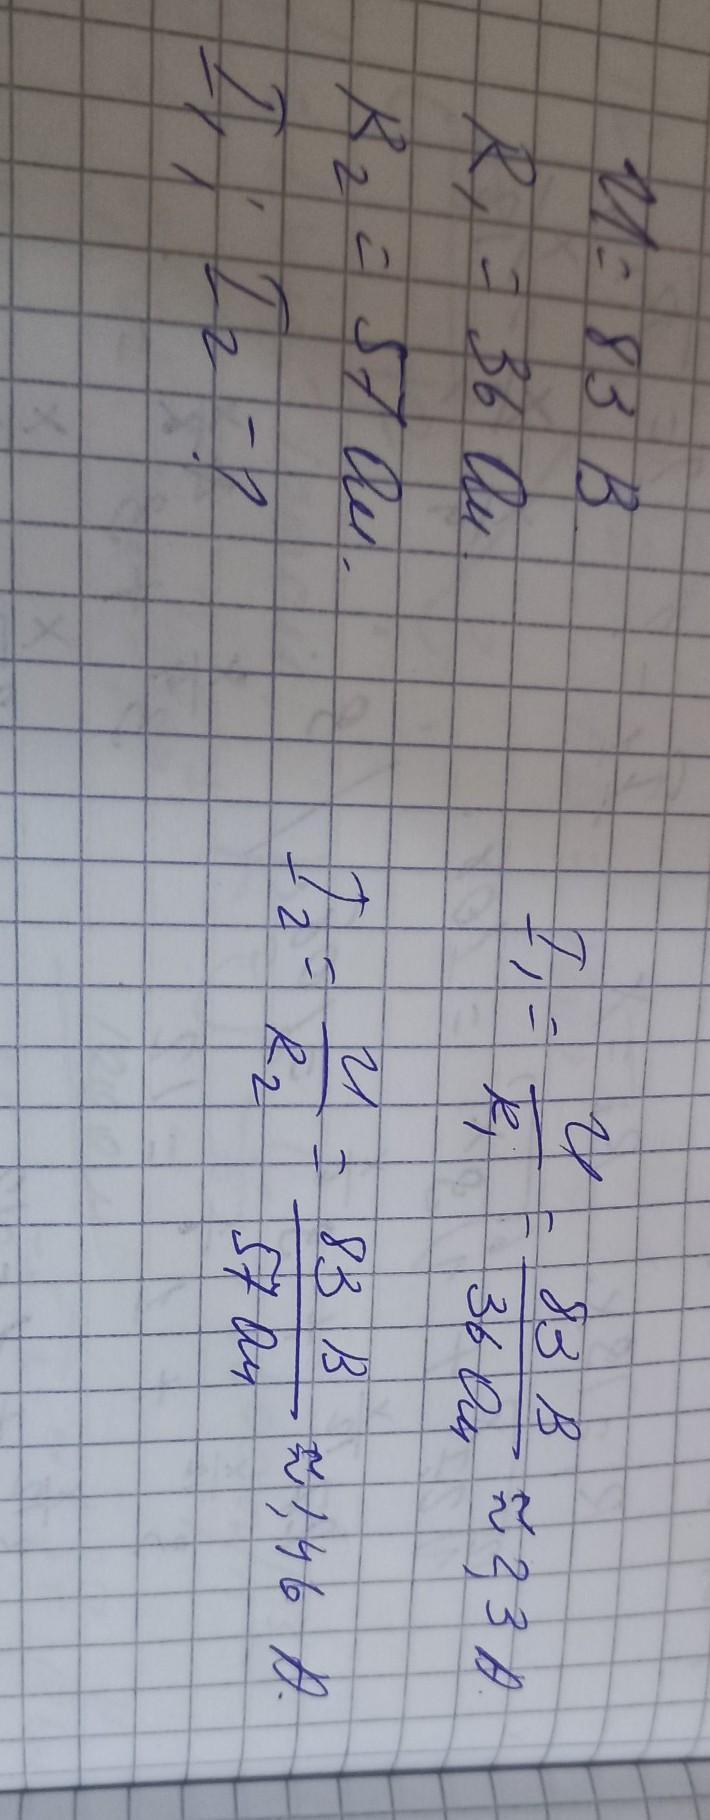 U = 83 В
R₁ = 36 Ом.
R₂ = 57 Ом.
I₁, I₂ - ?
I₁ = U/R₁ = 83 В/36 Ом ≈ 2,3 А.
I₂ = U/R₂ = 83 В/57 Ом ≈ 1,46 А.